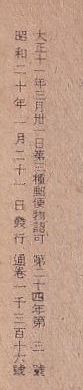 大正十一年三月卅一日第三種郵便物認可 第二十四年第三號
昭和二十年一月二十一日發行 通卷一千三百十六號